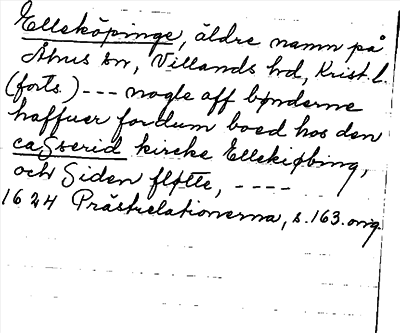 Elleköpinge, äldre namn på
Åhus sn, Villands hd, Krist. l.
(forts.) --- nogle aff bønderne
haffuer fordum boed hos den
casserid kircke Ellekiøbing,
och Siden fløtte, ----
1624 Prästrelationerna, s. 163. orig.